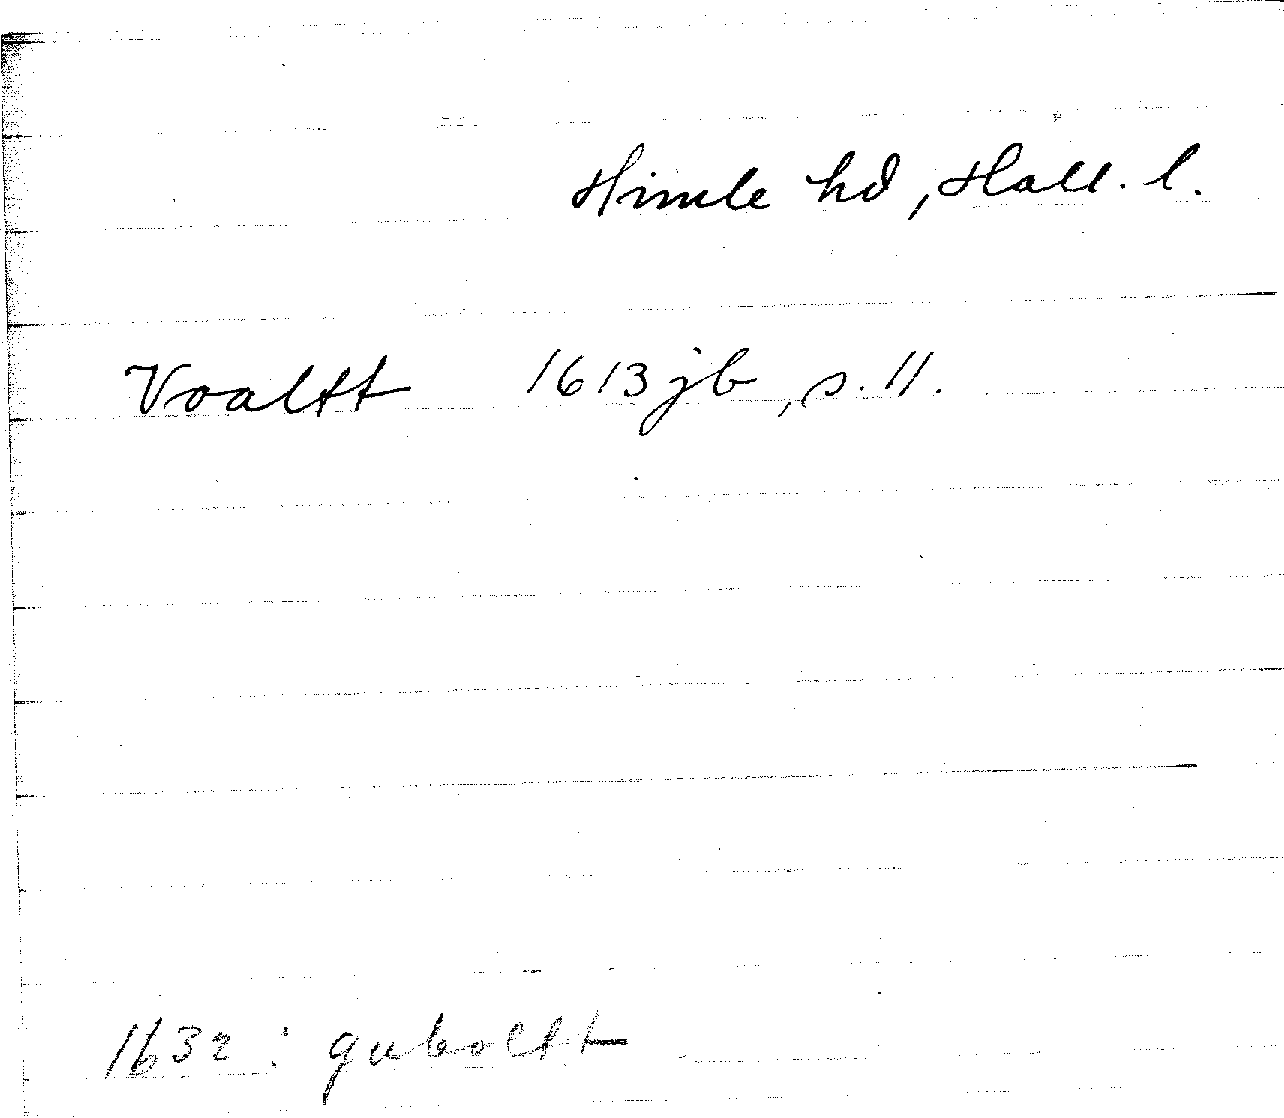 Himle hd, Hall. l.
Voaltt 1613 jb, s. 11.
1632 : guboltt